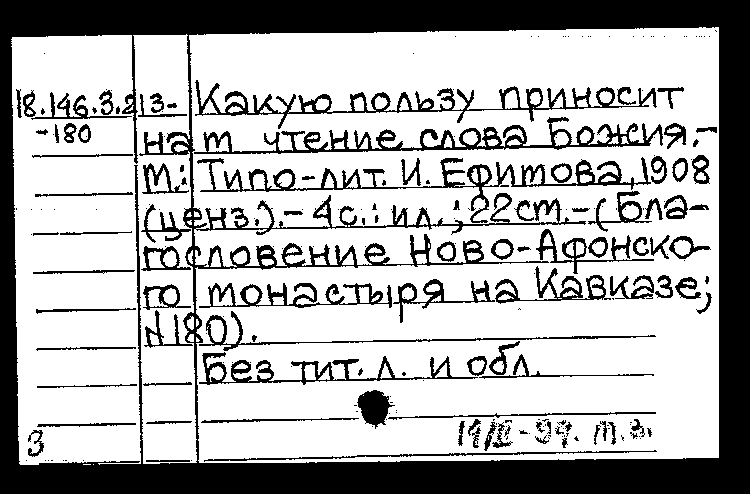 18.146.3.213- Какую пользу приносит
-180 нам чтение слова Божия.-
М.: Типо-лит. И. Ефимова, 1908
(ценз.).- 4с.: ил.; 22см.-(Бла-
гословение Ново-Афонско-
го монастыря на Кавказе;
N180).
Без тит. л. и обл.
З